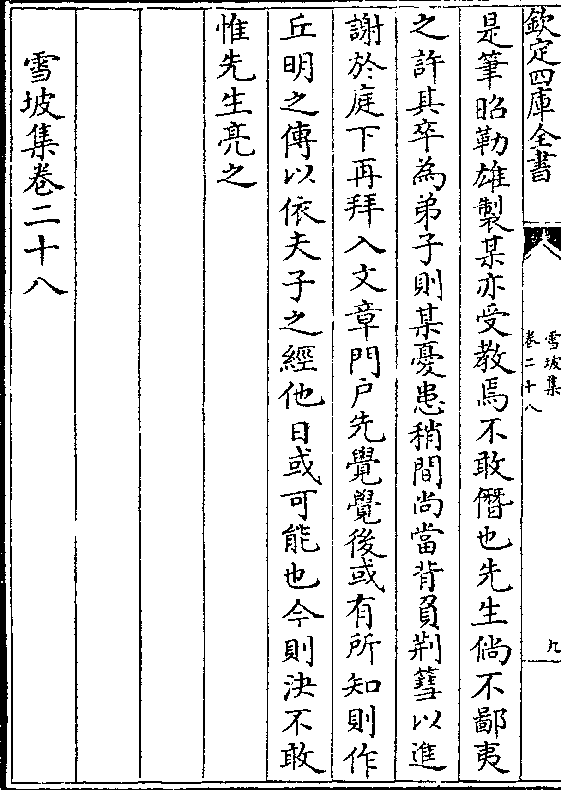 欽定四庫全書
雪坡集
卷二十八
九
是筆昭勒雄製某亦受教焉不敢僭也先生倘不鄙夷
之許其卒為弟子則某憂患稍間尚當背負荆篲以進
謝於庭下再拜入文章門户先覺覺後或有所知則作
丘明之傳以依夫子之經他日或可能也今則決不敢
惟先生亮之
雪坡集卷二十八